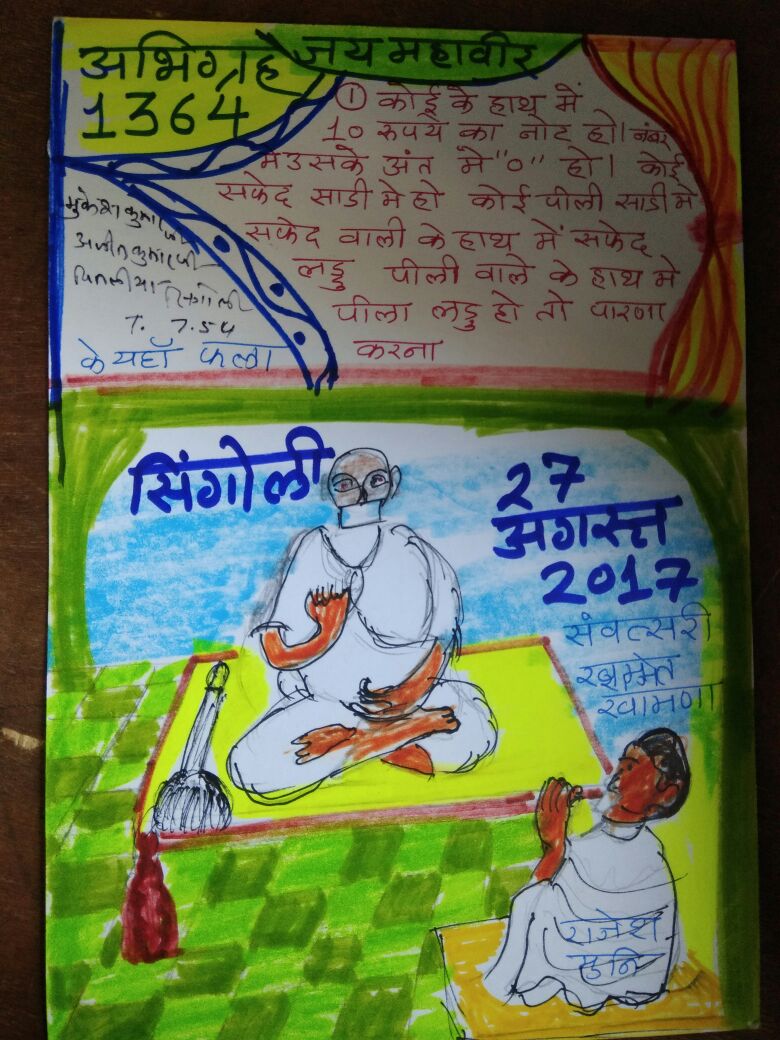 अभिग्रह
1364
जय महावीर
① कोई के हाथ में
10 रुपये का नोट हो। नंबर
मे उसके अंत मे "0" हो। कोई
सफेद साडी मे हो कोई पीली साडी मे
सफेद वाली के हाथ में सफेद
लड्डु पीली वाले के हाथ मे
पीला लड्डु हो तो पारणा
करना
मुकेशकुमारजी
अजीतकुमारजी
पितलीया सिंगोली
T. 7.54
के यहाँ फला
सिंगोली
27
अगस्त
2017
संवत्सरी
खमत
खामणा
राजेश
मुनि